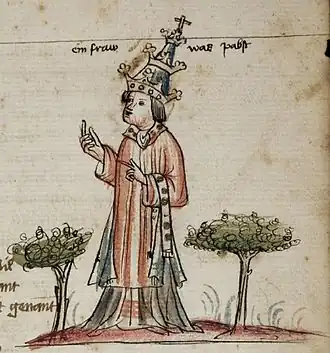 ein fraw was pabst
ant
t genant